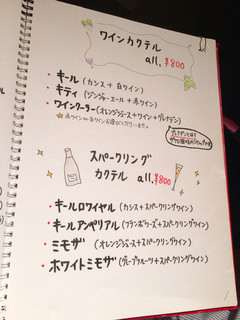 ワインカクテル
all, ¥800
・キール (カシス + 白ワイン)
・キティ (ジンジャーエール + 赤ワイン)
・ワインクーラー (オレンジジュース + ワイン + グレナデン)
スパークリング
カクテル all, ¥800
・キールロワイヤル (カシス + スパークリングワイン)
・キールアンペリアル (フランボワーズ + スパークリングワイン)
・ミモザ (オレンジジュース + スパークリングワイン)
・ホワイトミモザ (グレープフルーツ + スパークリングワイン)